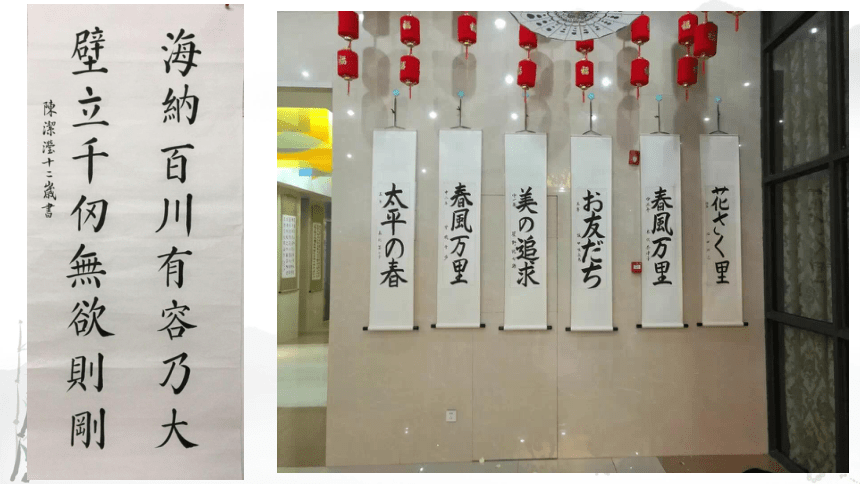 海納百川有容乃大
壁立千仞無欲則剛
陳潔瀅十二歲書
太平の春
春風万里
美の追求
お友だち
春風万里
花さく里
福
福
福
福
福